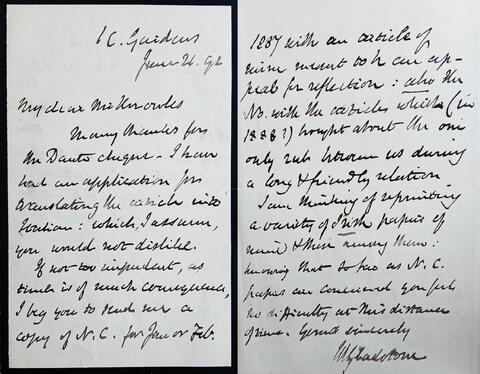 1 C. Gardens
June 26. 92
My dear Mr Knowles
Many thanks for
the Dante cheque - I have
had an application for
translating the article into
Italian: which, I assume,
you would not dislike.
If not too imprudent, as
time is of much consequence,
I beg you to send me a
copy of N.C. for Jan or Feb.
1887 with an article of
mine meant to be an ap-
peal for reflection: also the
No. with the articles which (in
1888?) brought about the one
only rub between us during
a long & friendly relation
I am thinking of reprinting
a variety of Irish papers of
mine & these among them:
knowing that so far as N.C.
papers are concerned you feel
no difficulty at this distance
of time. Yours sincerely
WGladstone